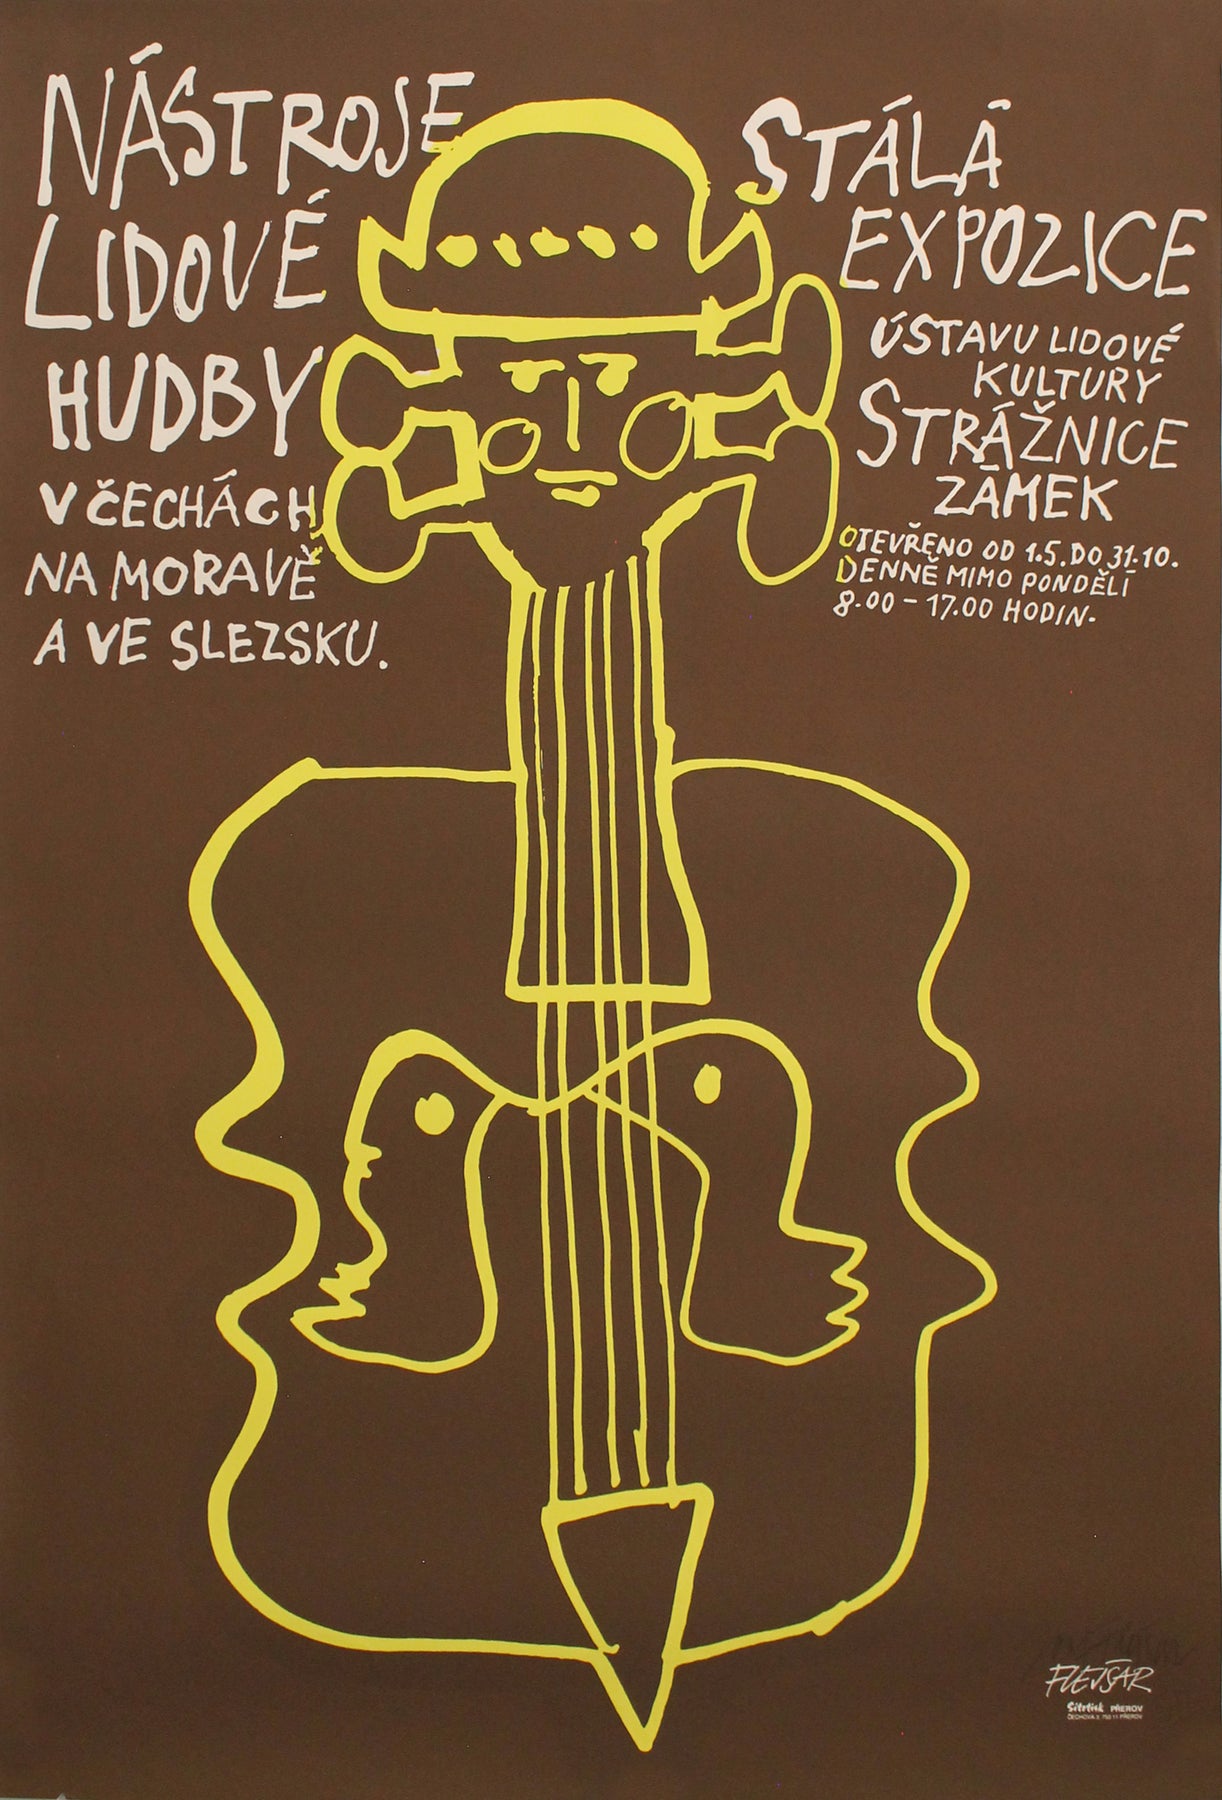 NÁSTROJE
LIDOVÉ
HUDBY
V ČECHÁCH
NA MORAVĚ
A VE SLEZSKU.
STÁLÁ
EXPOZICE
ÚSTAVU LIDOVÉ
KULTURY
STRÁŽNICE
ZÁMEK
OTEVŘENO OD 1.5. DO 31.10.
DENNĚ MIMO PONDĚLÍ
8.00 – 17.00 HODIN.
FLEJŠAR
Sítotisk PŘEROV